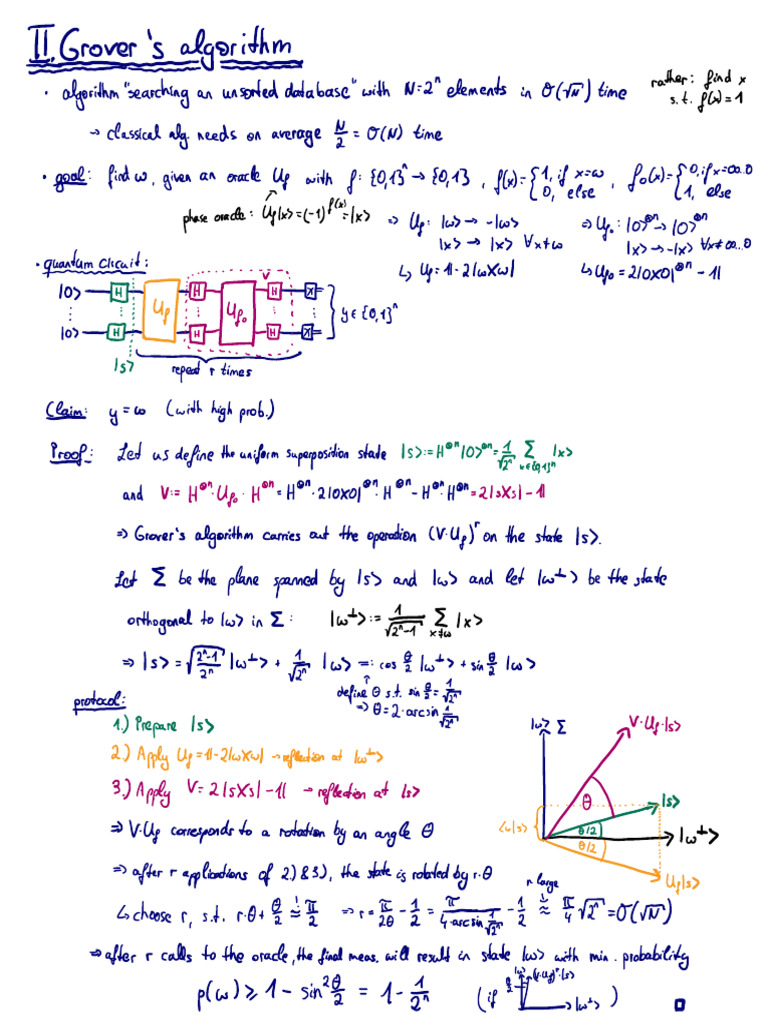 II. Grover's algorithm
• algorithm "searching an unsorted database" with N=2ⁿ elements in O(√N) time
rather: find x
s.t. f(x)=1
→ classical alg. needs on average N/2 = O(N) time
• goal: find ω, given an oracle U_f with f: {0,1}ⁿ → {0,1}, f(x)={1, if x=ω; 0, else, f₀(x)={0, if x=00..0; 1, else
phase oracle: U_f|x> = (-1)^f(x) = |x>
⇒ U_f: |ω> → -|ω>
|x> → |x> ∀x≠ω
↳ U_f = 1l - 2|ω><ω|
⇒ U_f₀: |0>^⊗n → |0>^⊗n
|x> → -|x> ∀x≠00...0
↳ U_f₀ = 2|0><0|^⊗n - 1l
• quantum circuit:
V
|0> H U_f H U_f₀ H X
|0> H H H X
y ∈ {0,1}ⁿ
|s>
repeat r times
Claim: y = ω (with high prob.)
Proof: Let us define the uniform superposition state |s> := H^⊗n |0>^⊗n = 1/√2ⁿ Σ_{x∈{0,1}ⁿ} |x>
and V := H^⊗n · U_f₀ · H^⊗n = H^⊗n · 2|0><0|^⊗n · H^⊗n - H^⊗n · H^⊗n = 2|s><s| - 1l
⇒ Grover's algorithm carries out the operation (V·U_f)^r on the state |s>.
Let Σ be the plane spanned by |s> and |ω> and let |ω^⊥> be the state
orthogonal to |ω> in Σ: |ω^⊥> := 1/√(2ⁿ-1) Σ_{x≠ω} |x>
⇒ |s> = √((2ⁿ-1)/2ⁿ) |ω^⊥> + 1/√2ⁿ |ω> =: cos θ/2 |ω^⊥> + sin θ/2 |ω>
define θ s.t. sin θ/2 = 1/√2ⁿ
⇒ θ = 2·arcsin 1/√2ⁿ
protocol:
1.) Prepare |s>
2.) Apply U_f = 1l - 2|ω><ω| → reflection at |ω^⊥>
3.) Apply V = 2|s><s| - 1l → reflection at |s>
⇒ V·U_f corresponds to a rotation by an angle θ
|ω> Σ
V·U_f·|s>
θ
|s>
<ω|s>
θ/2
|ω^⊥>
θ/2
U_f|s>
⇒ after r applications of 2.) & 3.), the state is rotated by r·θ
↳ choose r, s.t. r·θ + θ/2 ≟ π/2 ⇒ r = π/2θ - 1/2 = π/(4·arcsin 1/√2ⁿ) - 1/2 ≈ π/4 √2ⁿ = O(√N)
r large
⇒ after r calls to the oracle, the final meas. will result in state |ω> with min. probability
p(ω) ≥ 1 - sin² θ/2 = 1 - 1/2ⁿ (if |ω> θ/2 (V·U_f)^r·|s> |ω^⊥>)